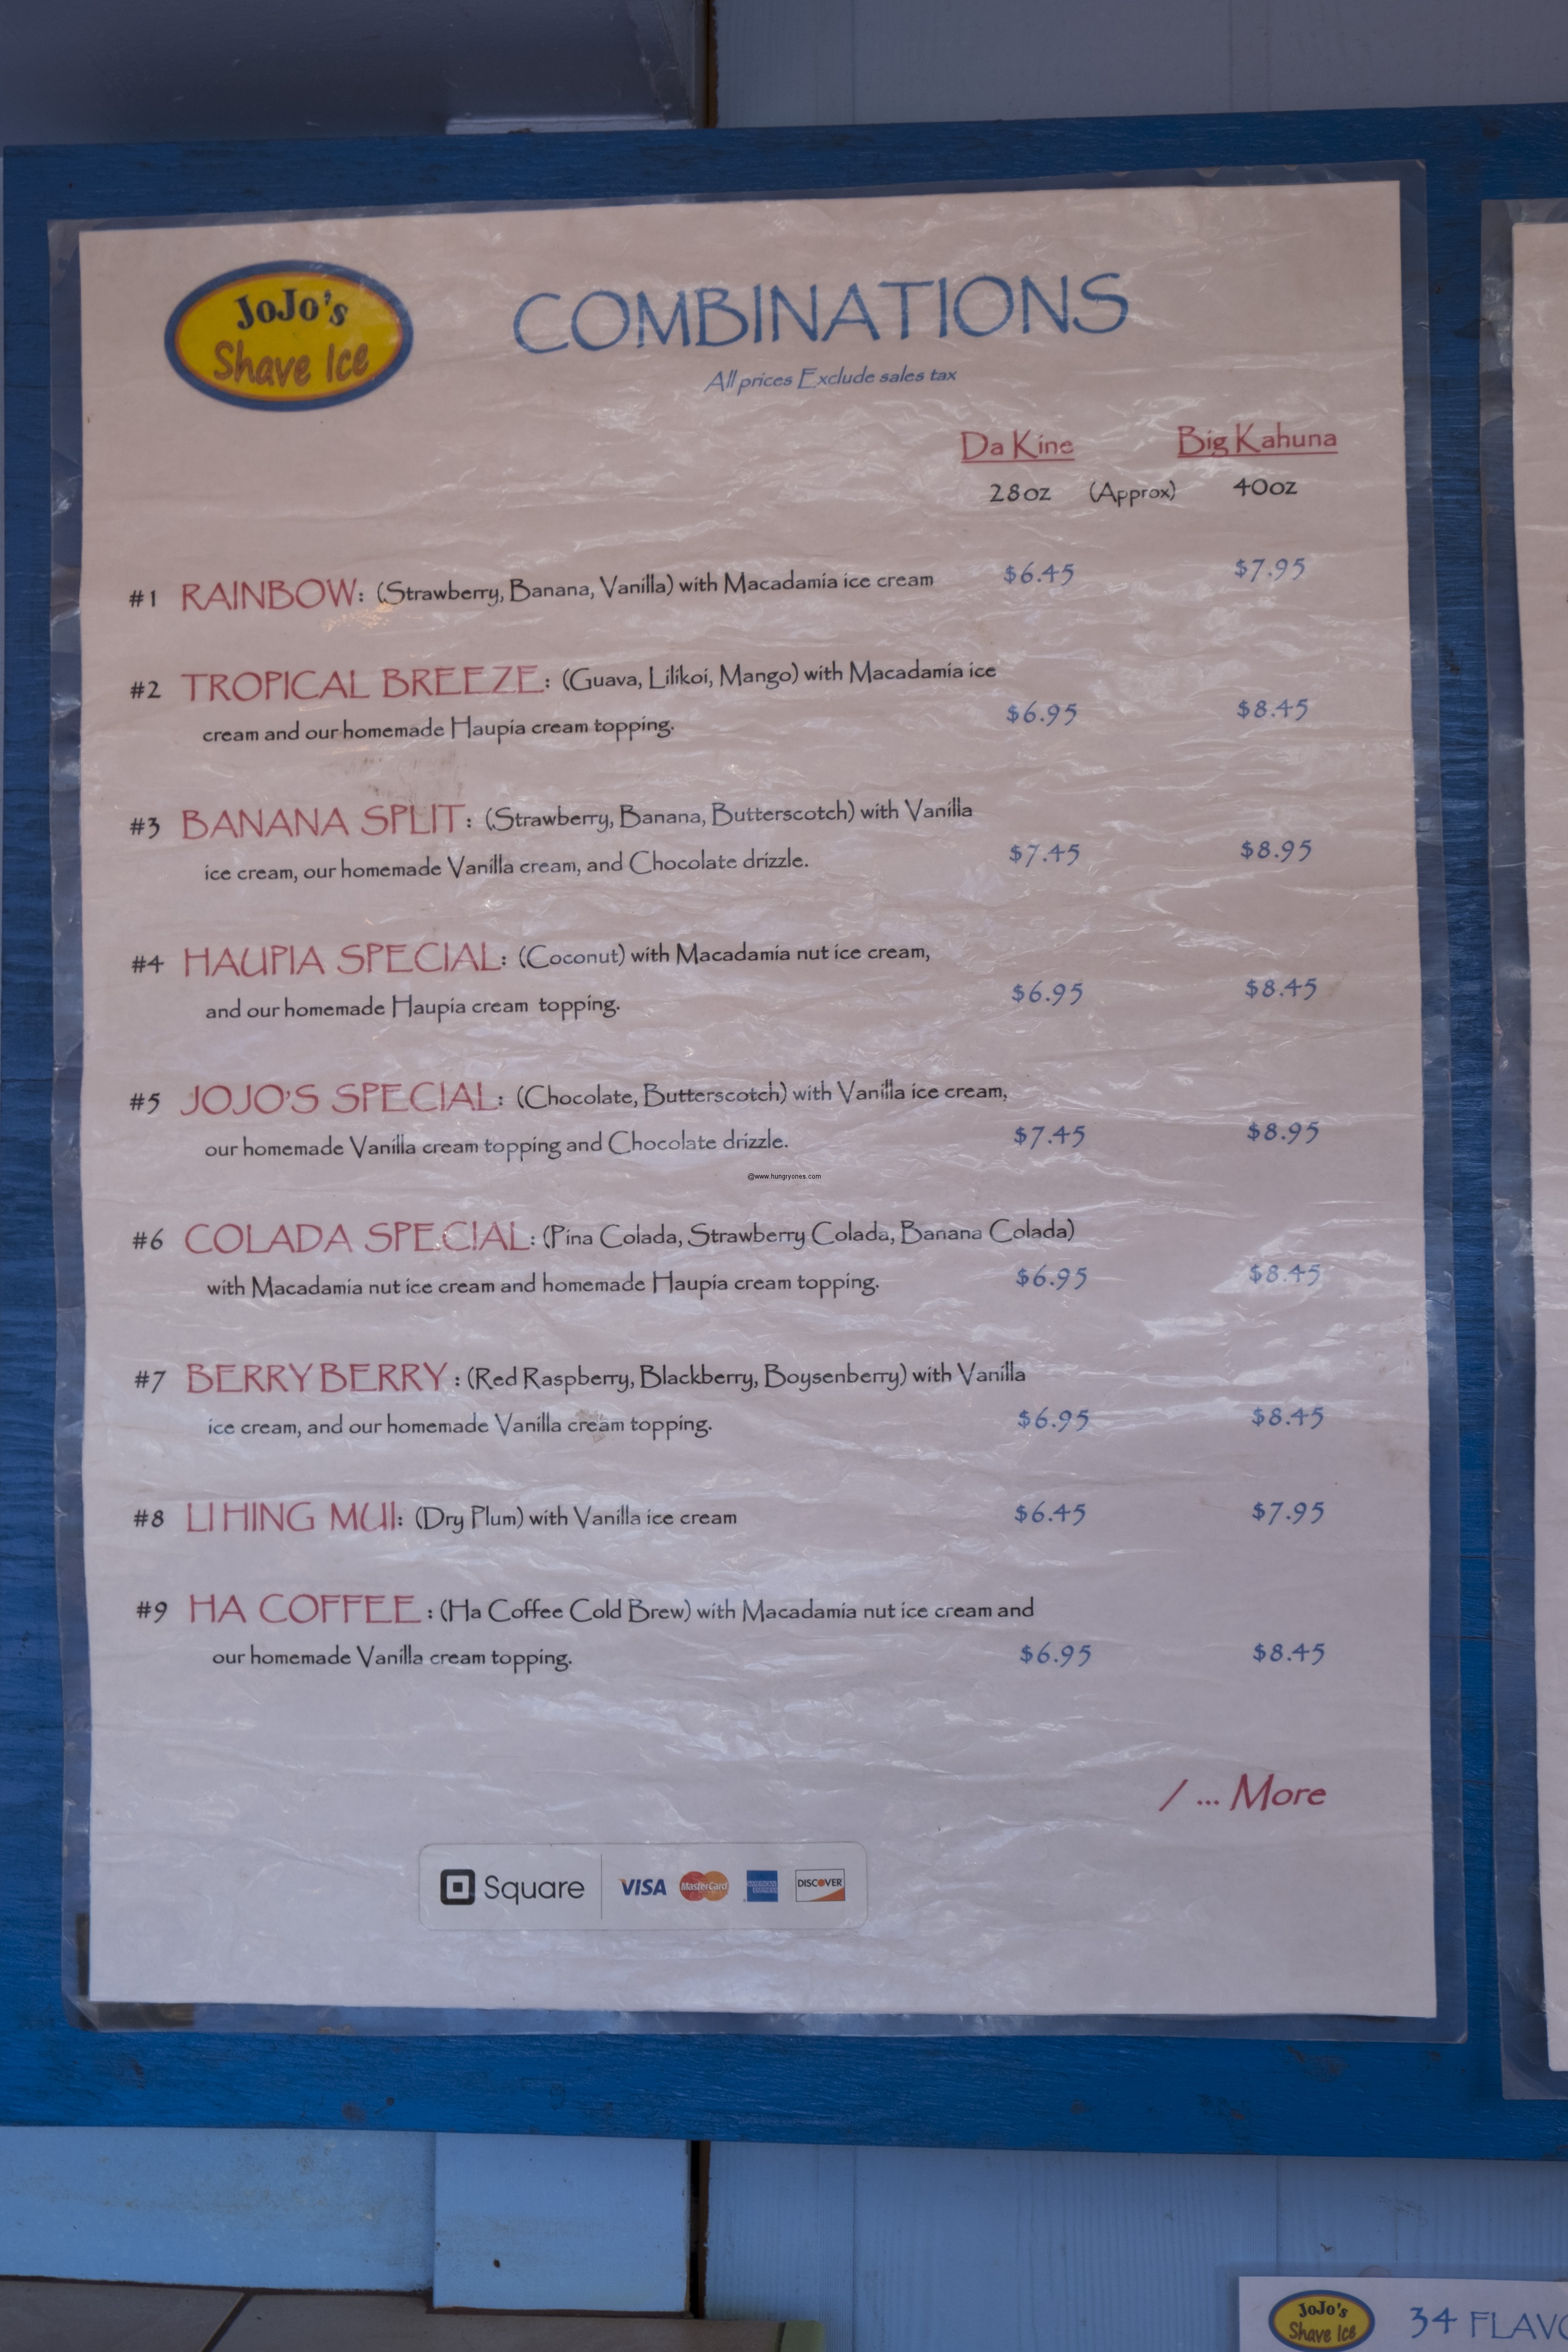 JoJo's
Shave Ice
COMBINATIONS
All prices Exclude sales tax
Da Kine Big Kahuna
28oz (Approx) 40oz
#1 RAINBOW: (Strawberry, Banana, Vanilla) with Macadamia ice cream $6.45 $7.95
#2 TROPICAL BREEZE: (Guava, Lilikoi, Mango) with Macadamia ice
cream and our homemade Haupia cream topping. $6.95 $8.45
#3 BANANA SPLIT: (Strawberry, Banana, Butterscotch) with Vanilla
ice cream, our homemade Vanilla cream, and Chocolate drizzle. $7.45 $8.95
#4 HAUPIA SPECIAL: (Coconut) with Macadamia nut ice cream,
and our homemade Haupia cream topping. $6.95 $8.45
#5 JOJO'S SPECIAL: (Chocolate, Butterscotch) with Vanilla ice cream,
our homemade Vanilla cream topping and Chocolate drizzle. $7.45 $8.95
@www.hungryones.com
#6 COLADA SPECIAL: (Pina Colada, Strawberry Colada, Banana Colada)
with Macadamia nut ice cream and homemade Haupia cream topping. $6.95 $8.45
#7 BERRY BERRY : (Red Raspberry, Blackberry, Boysenberry) with Vanilla
ice cream, and our homemade Vanilla cream topping. $6.95 $8.45
#8 LI HING MUI: (Dry Plum) with Vanilla ice cream $6.45 $7.95
#9 HA COFFEE : (Ha Coffee Cold Brew) with Macadamia nut ice cream and
our homemade Vanilla cream topping. $6.95 $8.45
/ ... More
Square VISA MasterCard AMERICAN EXPRESS DISCOVER
JoJo's
Shave Ice
34 FLAVO